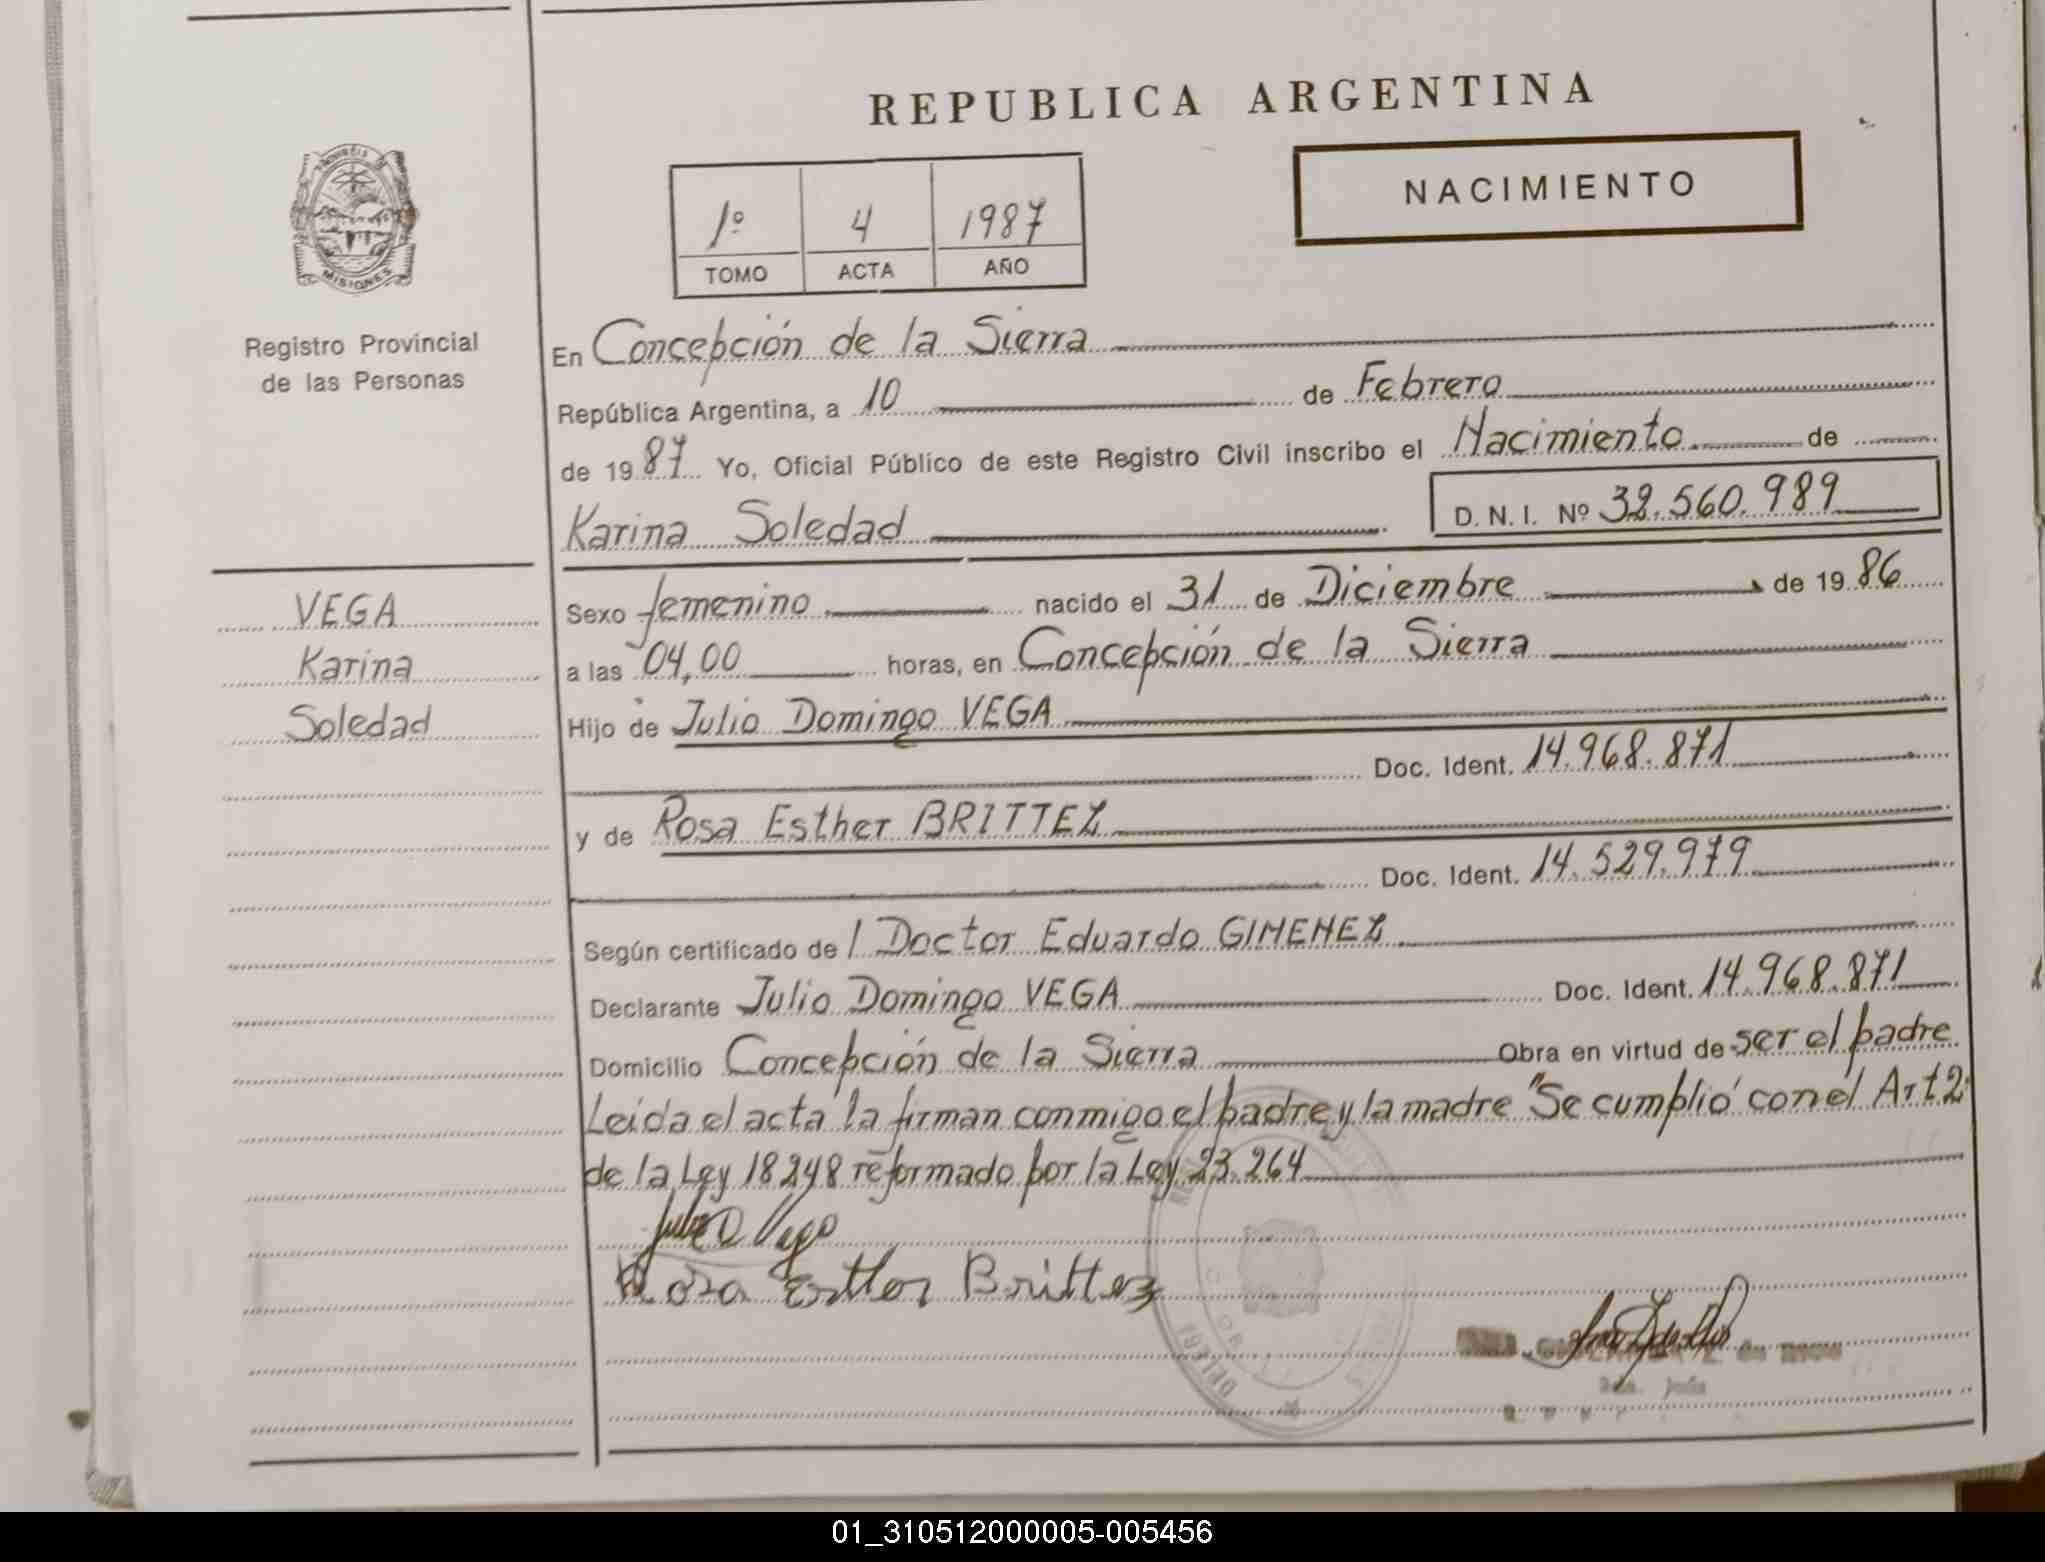 REPUBLICA ARGENTINA
NACIMIENTO
1º 4 1987
TOMO ACTA AÑO
MISIONES
Registro Provincial
de las Personas
En Concepción de la Sierra
República Argentina, a 10 de Febrero
de 1987 Yo, Oficial Público de este Registro Civil inscribo el Nacimiento de
Karina Soledad D. N. I. Nº 32.560.989
VEGA
Karina
Soledad
Sexo femenino nacido el 31 de Diciembre de 1986
a las 04,00 horas, en Concepción de la Sierra
Hijo de Julio Domingo VEGA
Doc. Ident. 14.968.871
y de Rosa Esther BRITTEZ
Doc. Ident. 14.529.979
Según certificado del Doctor Eduardo GIMENEZ
Declarante Julio Domingo VEGA Doc. Ident. 14.968.871
Domicilio Concepción de la Sierra Obra en virtud de ser el padre
Leída el acta la firman conmigo el padre y la madre "Se cumplió con el Art 2
de la Ley 18248 reformado por la Ley 23.264
Julio D Vega
Rosa Esther Brittez
01_310512000005-005456